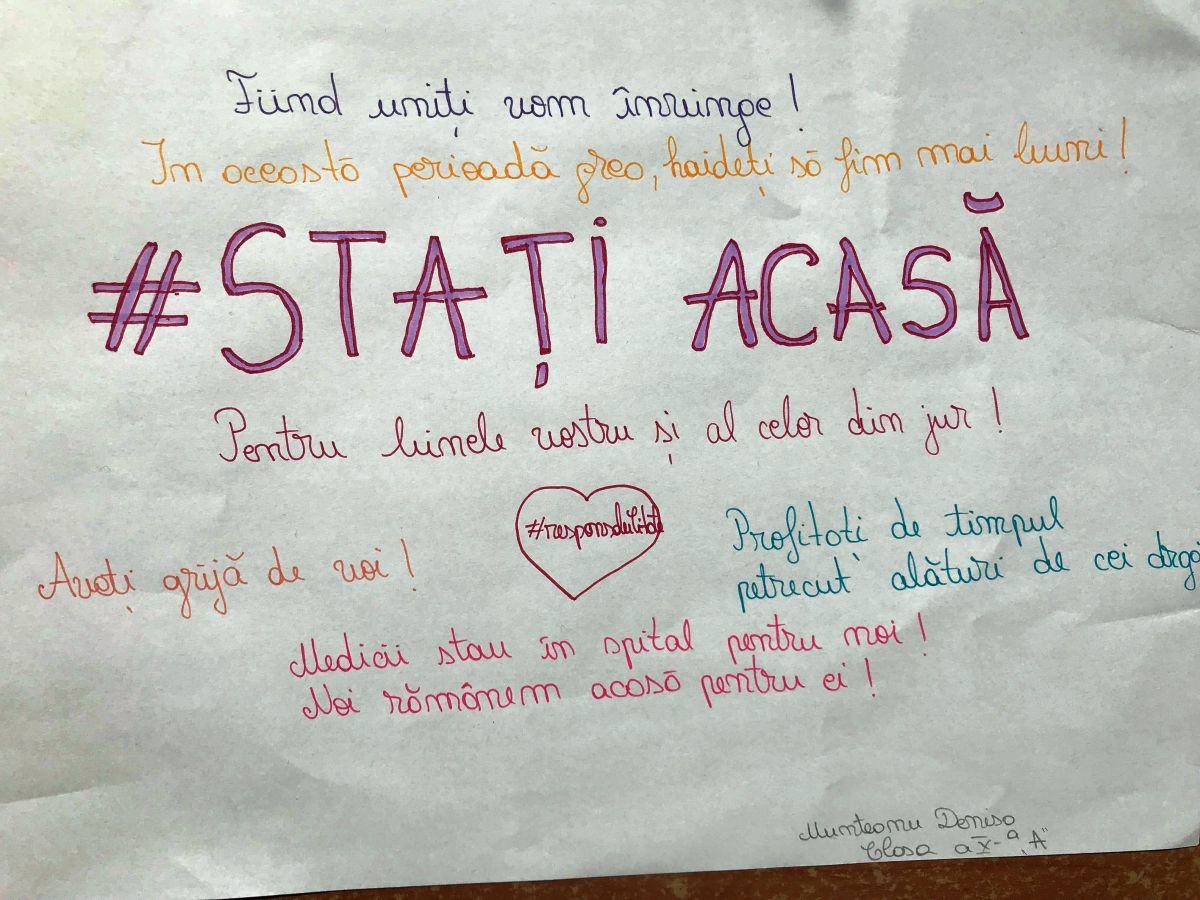 Fiind uniți vom învinge!
În această perioadă grea, haideți să fim mai buni!
#STAȚI ACASĂ
Pentru binele vostru și al celor din jur!
#responsabilitate
Aveți grijă de voi!
Profitați de timpul
petrecut alături de cei dragi
Medicii stau în spital pentru noi!
Noi rămânem acasă pentru ei!
Munteanu Denisa
Clasa a X-a „A"